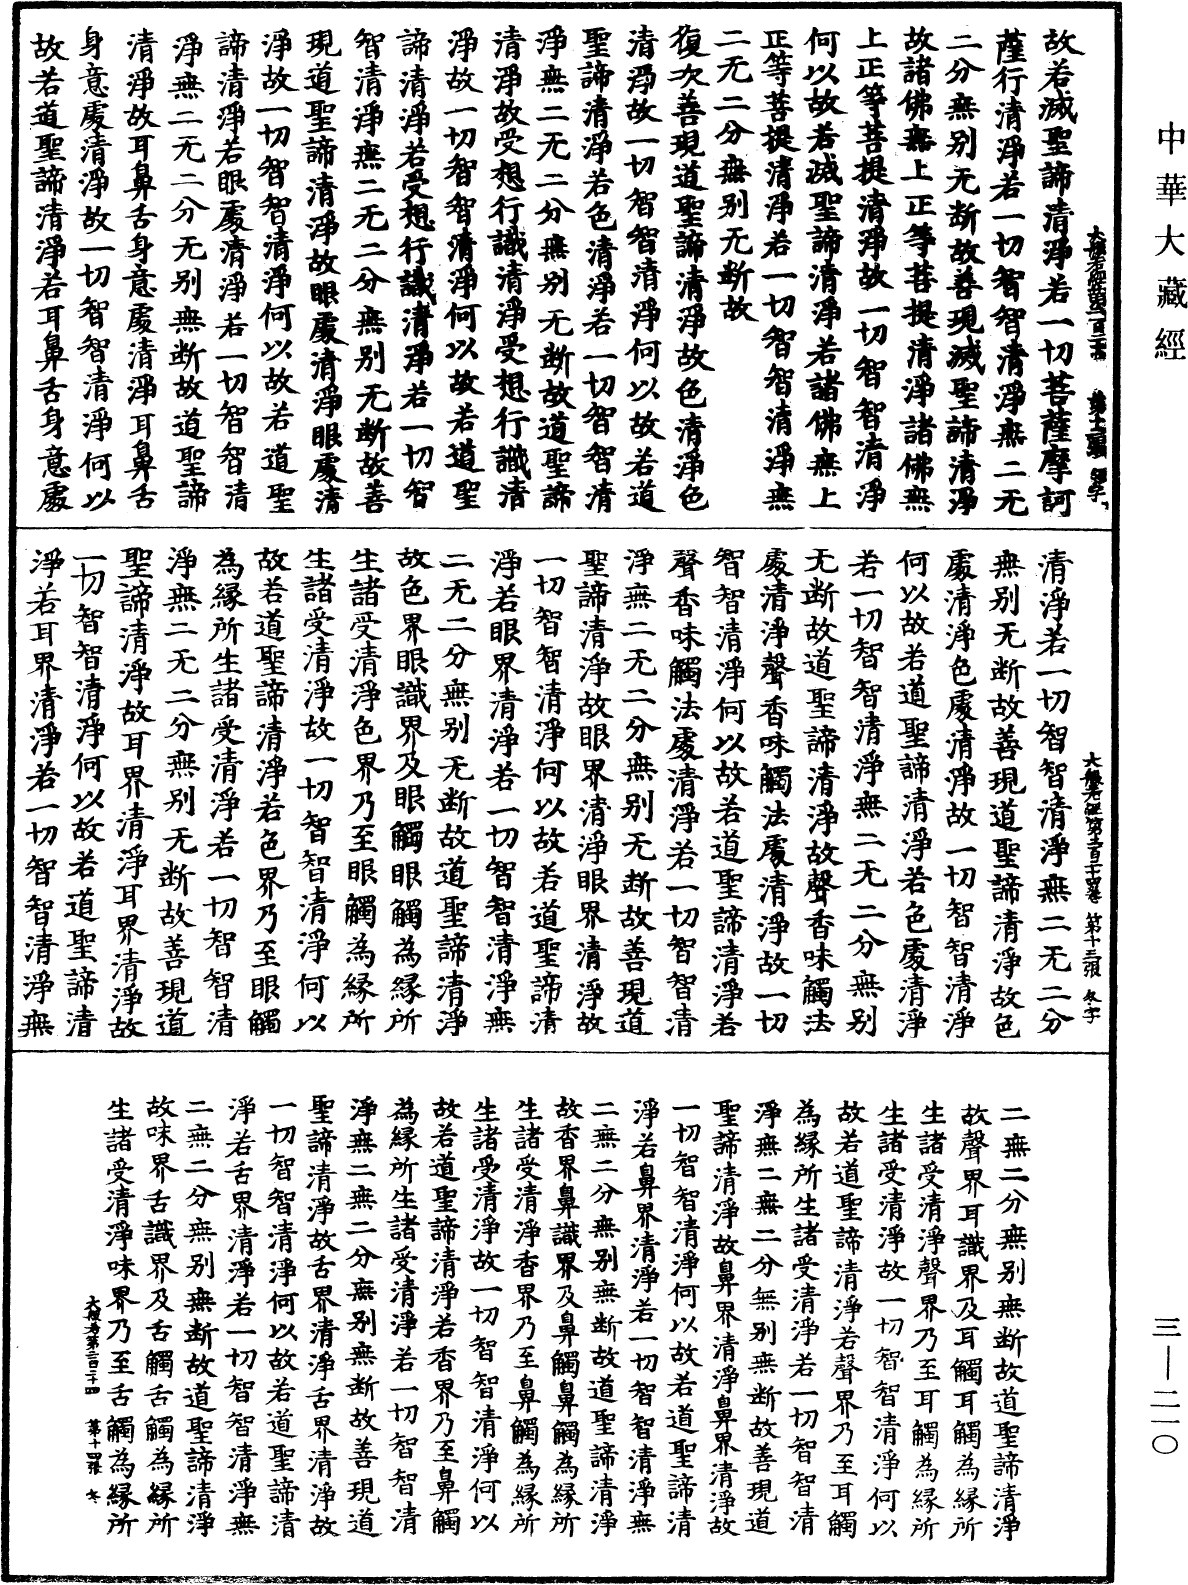 中華大藏經
故若滅聖諦清淨若一切菩薩摩訶
薩行清淨若一切智智清淨無二无
二分無別无断故善現滅聖諦清淨
故諸佛無上正等菩提清淨諸佛無
上正等菩提清淨故一切智智清淨
何以故若滅聖諦清淨若諸佛無上
正等菩提清淨若一切智智清淨無
二无二分無別无断故
復次善現道聖諦清淨故色清淨色
清淨故一切智智清淨何以故若道
聖諦清淨若色清淨若一切智智清
淨無二无二分無別无断故道聖諦
清淨故受想行識清淨受想行識清
淨故一切智智清淨何以故若道聖
諦清淨若受想行識清淨若一切智
智清淨無二无二分無別无断故善
現道聖諦清淨故眼處清淨眼處清
淨故一切智智清淨何以故若道聖
諦清淨若眼處清淨若一切智智清
淨無二无二分无別無断故道聖諦
清淨故耳鼻舌身意處清淨耳鼻舌
身意處清淨故一切智智清淨何以
故若道聖諦清淨若耳鼻舌身意處
大般若經第二百二十四卷 第十三張 冬字
清淨若一切智智清淨無二无二分
無別无断故善現道聖諦清淨故色
處清淨色處清淨故一切智智清淨
何以故若道聖諦清淨若色處清淨
若一切智智清淨無二无二分無別
无断故道聖諦清淨故聲香味觸法
處清淨聲香味觸法處清淨故一切
智智清淨何以故若道聖諦清淨若
聲香味觸法處清淨若一切智智清
淨無二无二分無別无断故善現道
聖諦清淨故眼界清淨眼界清淨故
一切智智清淨何以故若道聖諦清
淨若眼界清淨若一切智智清淨無
二无二分無別无断故道聖諦清淨
故色界眼識界及眼觸眼觸為緣所
生諸受清淨色界乃至眼觸為緣所
生諸受清淨故一切智智清淨何以
故若道聖諦清淨若色界乃至眼觸
為緣所生諸受清淨若一切智智清
淨無二无二分無別无断故善現道
聖諦清淨故耳界清淨耳界清淨故
一切智智清淨何以故若道聖諦清
淨若耳界清淨若一切智智清淨無
二無二分無別無断故道聖諦清淨
故聲界耳識界及耳觸耳觸為緣所
生諸受清淨聲界乃至耳觸為緣所
生諸受清淨故一切智智清淨何以
故若道聖諦清淨若聲界乃至耳觸
為緣所生諸受清淨若一切智智清
淨無二無二分無別無断故善現道
聖諦清淨故鼻界清淨鼻界清淨故
一切智智清淨何以故若道聖諦清
淨若鼻界清淨若一切智智清淨無
二無二分無別無断故道聖諦清淨
故香界鼻識界及鼻觸鼻觸為緣所
生諸受清淨香界乃至鼻觸為緣所
生諸受清淨故一切智智清淨何以
故若道聖諦清淨若香界乃至鼻觸
為緣所生諸受清淨若一切智智清
淨無二無二分無別無断故善現道
聖諦清淨故舌界清淨舌界清淨故
一切智智清淨何以故若道聖諦清
淨若舌界清淨若一切智智清淨無
二無二分無別無断故道聖諦清淨
故味界舌識界及舌觸舌觸為緣所
生諸受清淨味界乃至舌觸為緣所
大般若第二百二十四 第十四張 冬
三—二一〇